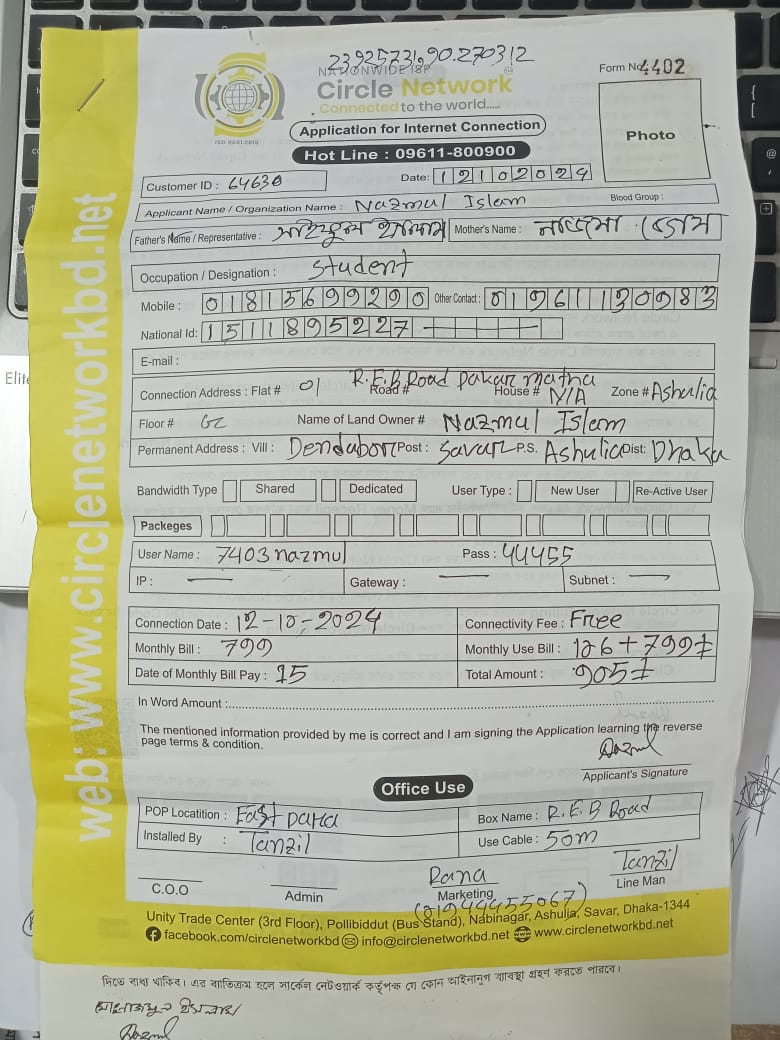 23925731,90.270312
NATIONWIDE ISP
Circle Network
Connected to the world.....
ISO 9001:2015
Form No 4402
Application for Internet Connection
Photo
Hot Line : 09611-800900
Customer ID : 64630
Date: 12102024
Applicant Name / Organization Name : Nazmul Islam
Blood Group :
Father's Name / Representative : সাইফুল ইসলাম Mother's Name : নাজমা বেগম
Occupation / Designation : Student
Mobile : 01815699290 Other Contact : 01961130983
National Id: 1511895227
E-mail :
Connection Address : Flat # 01 Road # R.E.B Road Pakar matha House # N/A Zone # Ashulia
Floor # G Name of Land Owner # Nazmul Islam
Permanent Address : Vill : Dendabor Post : Savar P.S. Ashulia Dist: Dhaka
Bandwidth Type Shared Dedicated User Type : New User Re-Active User
Packeges
User Name : 7403nazmul Pass : 44455
IP : — Gateway : — Subnet : —
Connection Date : 12-10-2024 Connectivity Fee : Free
Monthly Bill : 799 Monthly Use Bill : 126+799
Date of Monthly Bill Pay : 15 Total Amount : 905
In Word Amount :
The mentioned information provided by me is correct and I am signing the Application learning the reverse
page terms & condition.
Nazmul
Applicant's Signature
Office Use
POP Locatition : East para Box Name : R.E.B Road
Installed By : Tanzil Use Cable : 50m
C.O.O
Admin
Rana
Marketing
(01944455067)
Tanzil
Line Man
Unity Trade Center (3rd Floor), Pollibiddut (Bus Stand), Nabinagar, Ashulia, Savar, Dhaka-1344
facebook.com/circlenetworkbd info@circlenetworkbd.net www.circlenetworkbd.net
web: www.circlenetworkbd.net
দিতে বাধ্য থাকিব। এর ব্যতিক্রম হলে সার্কেল নেটওয়ার্ক কর্তৃপক্ষ যে কোন আইনানুগ ব্যবস্থা গ্রহণ করতে পারবে।
Nazmul
Elite